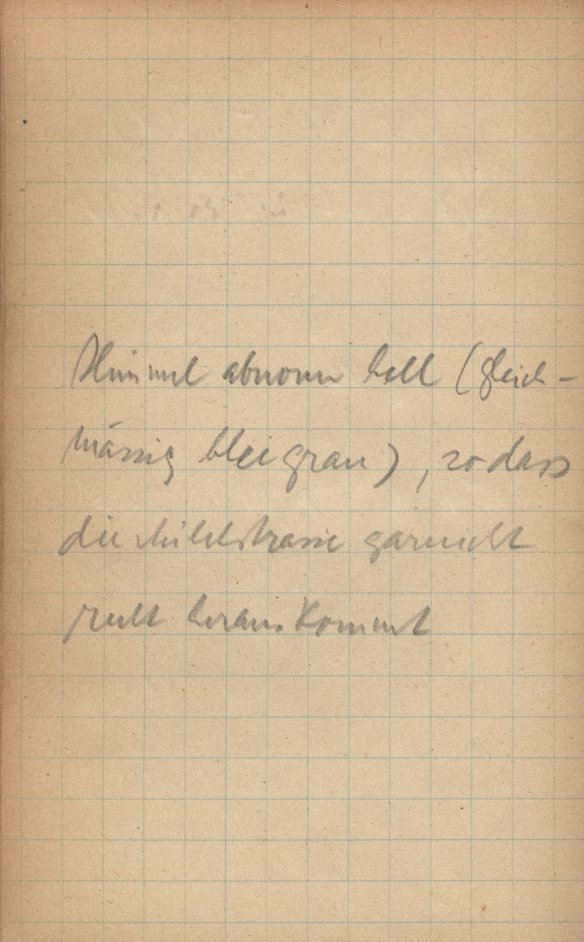 Himmel abnorm hell (gleich-
mässig bleigrau), sodass
die Milchstrasse garnicht
recht herauskommt